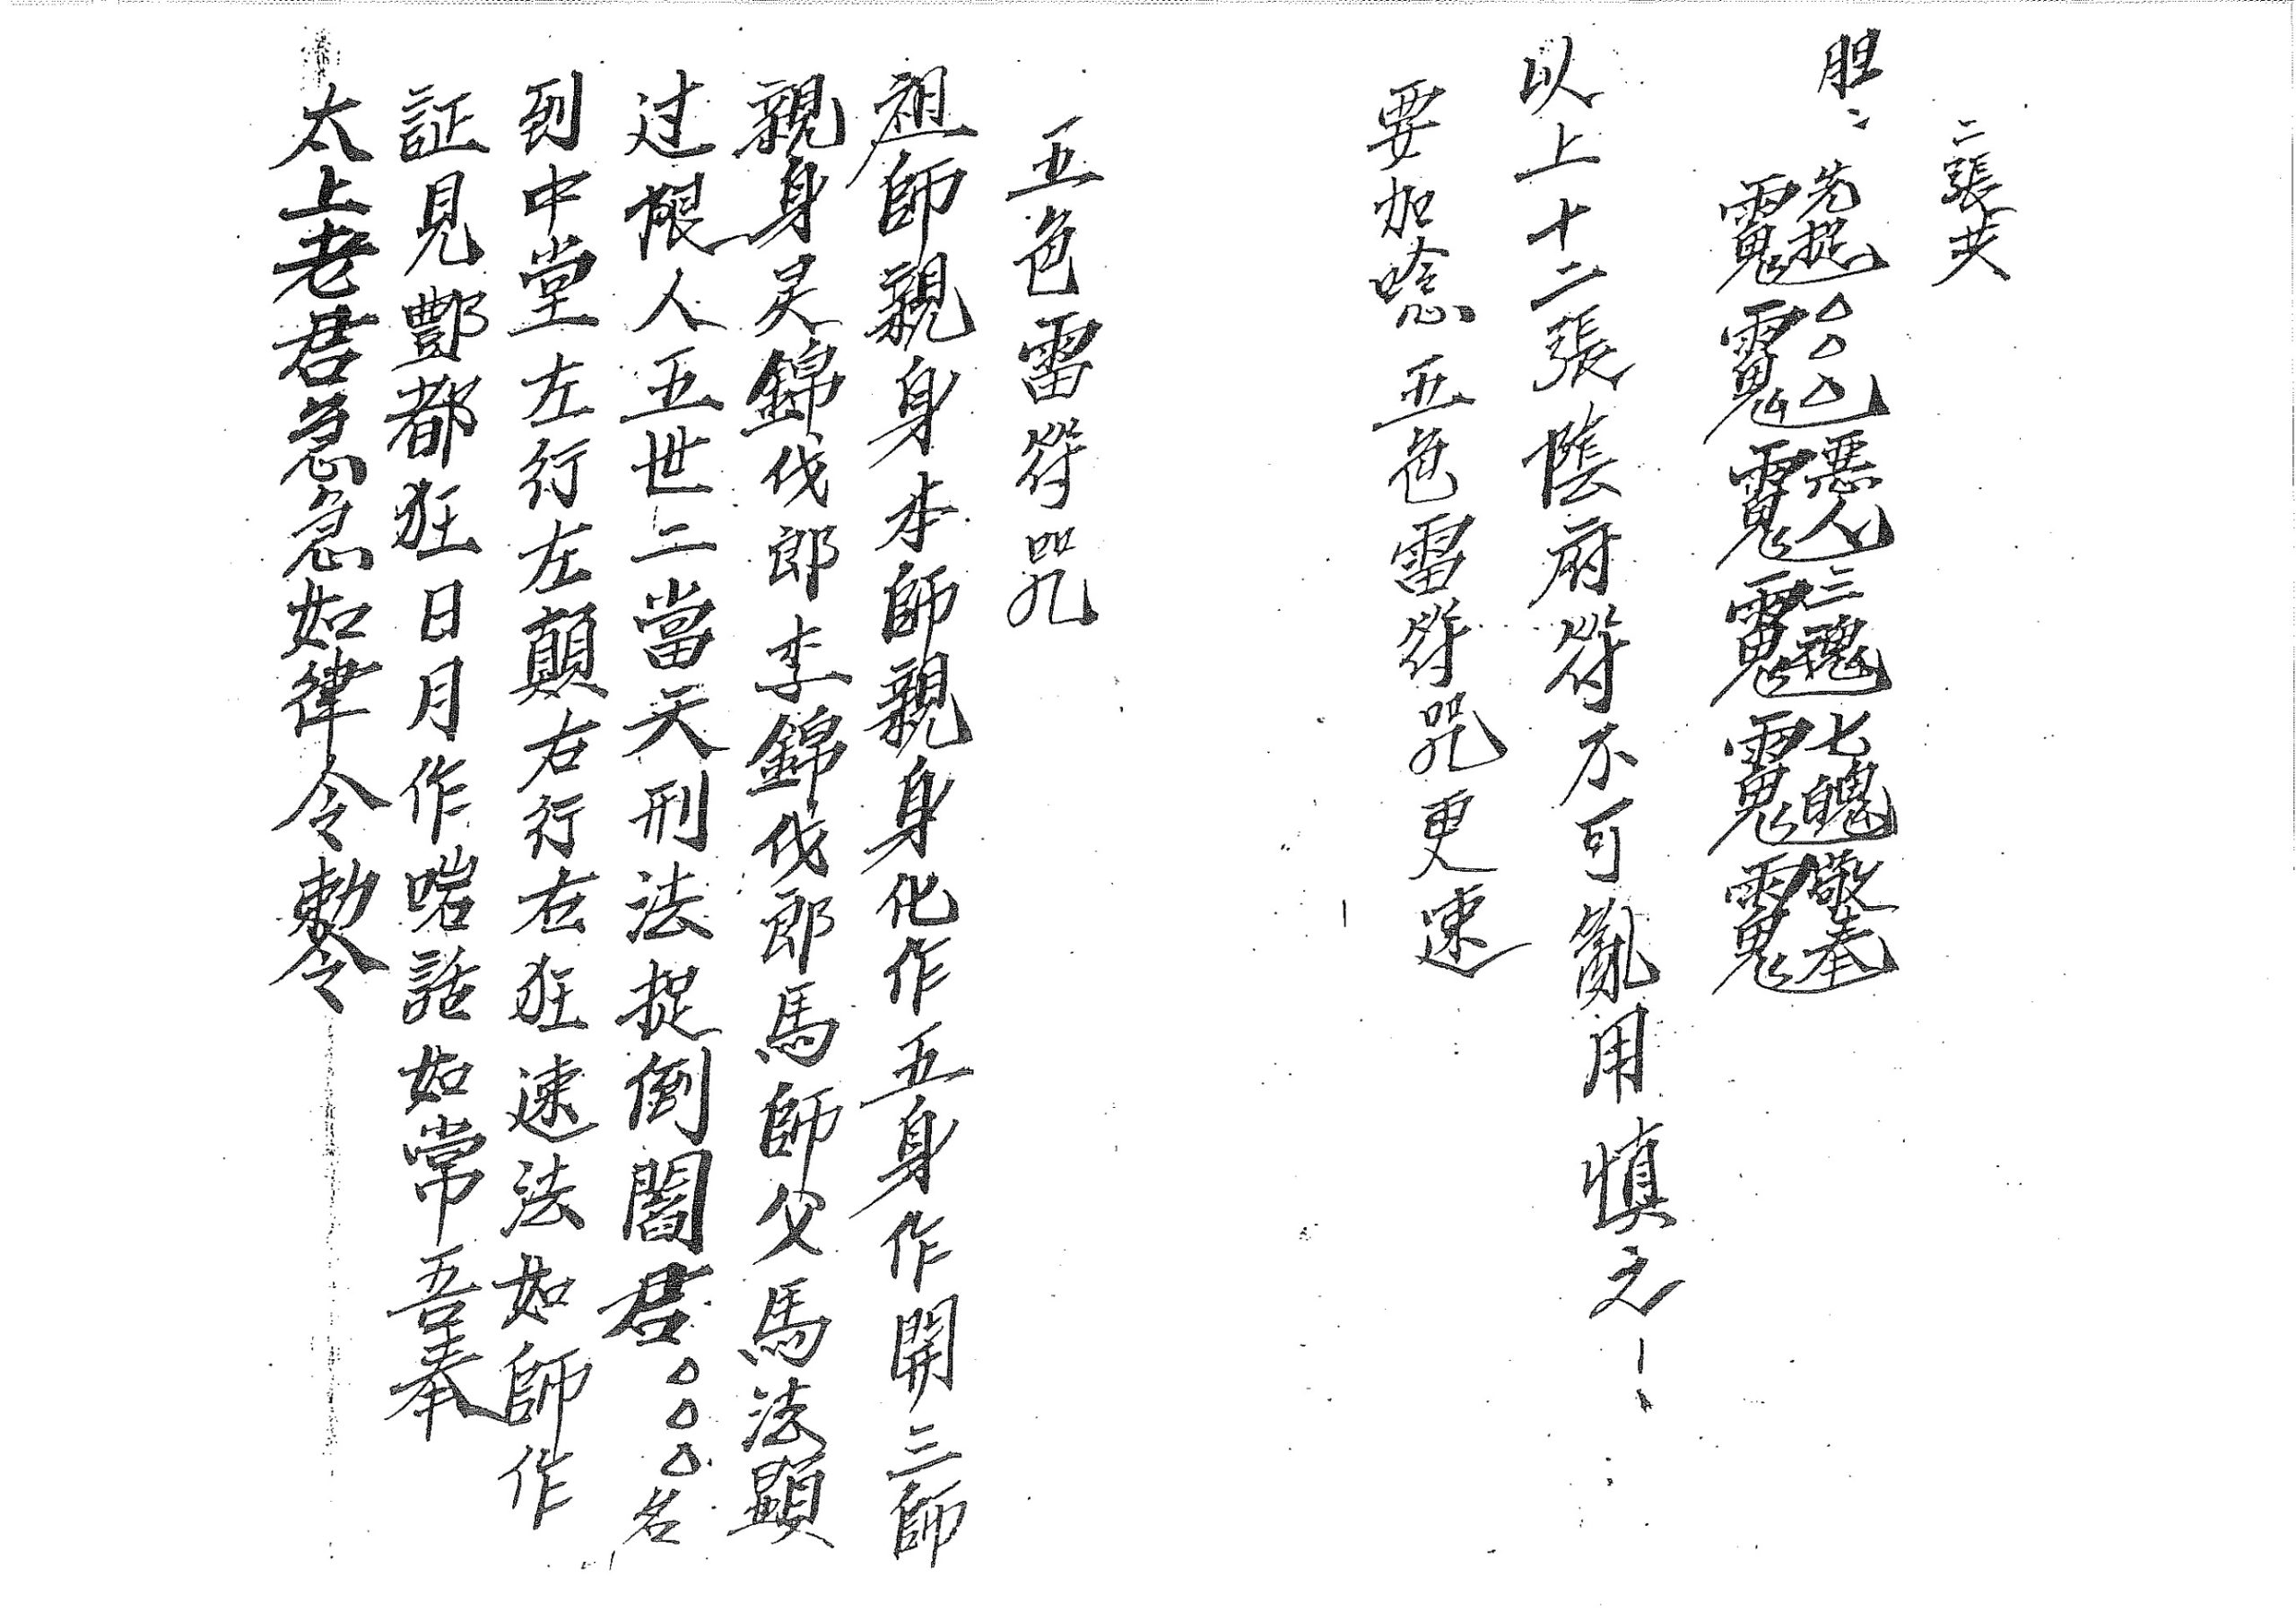 二張共
胆：先捉△△△惡人三魂七魄敬奉
以上十二張陰府符不可亂用慎之！
要加唸五色雷符咒更速
五色雷符咒
祖師親身本師親身化作五身作開三師
親身灵錦伐郎李錦伐郎馬師父馬法顕
过恨人五世二當天刑法捉倒閣君△△△名
到中堂左行左顛右行右狂速法如師作
証見酆都狂日月作啱話如常吾奉
太上老君急急如律令勅令